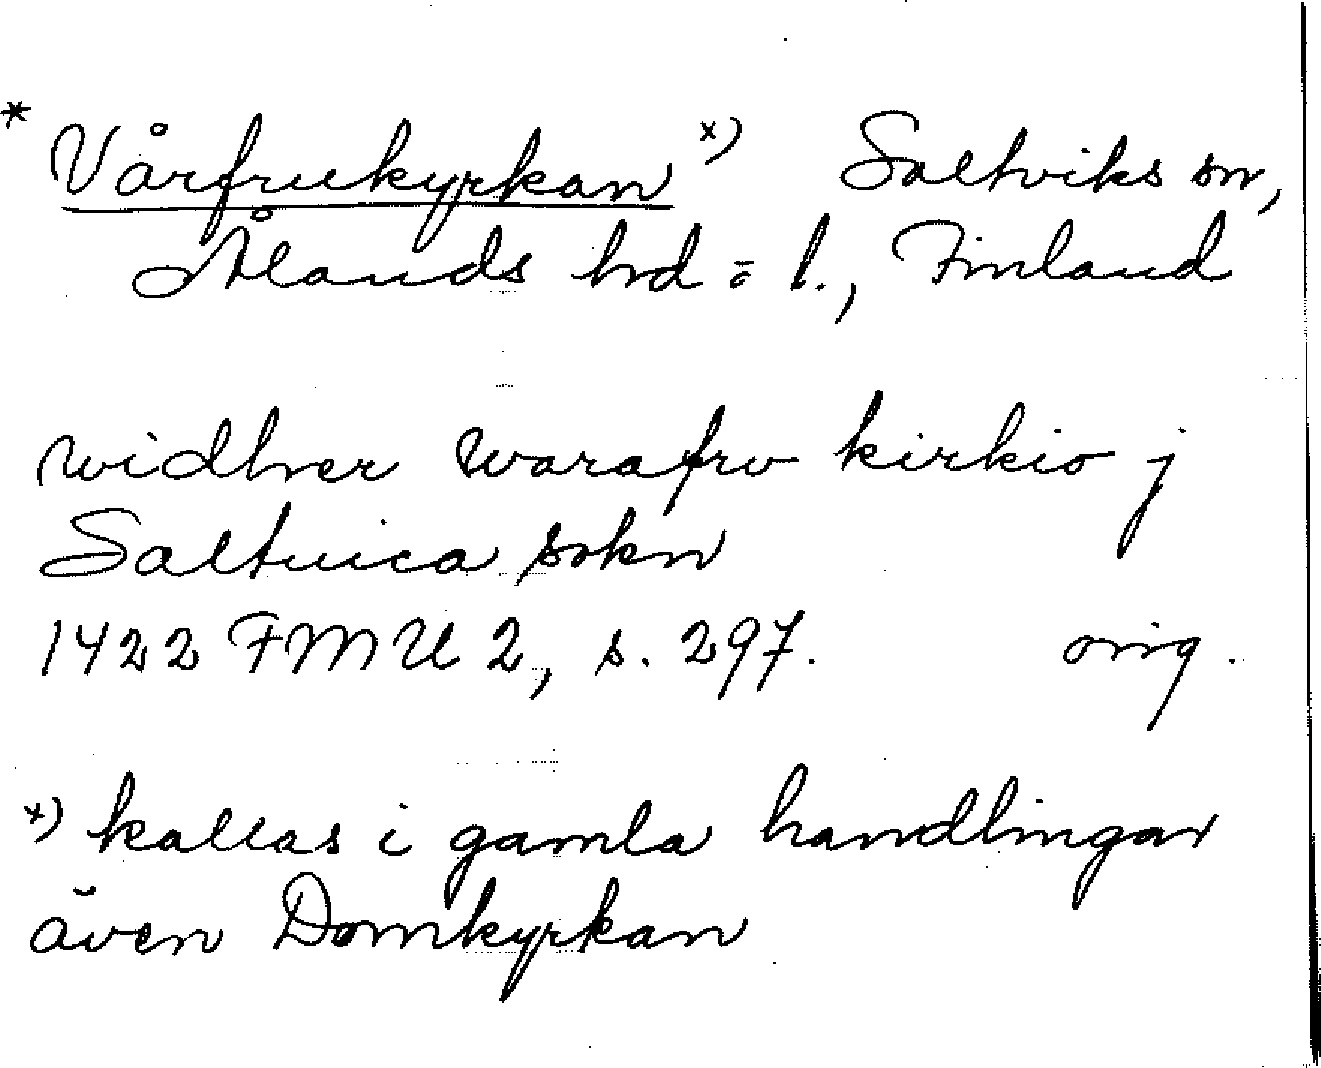 * Vårfrukyrkan x) Saltviks sn,
Ålands hd o. l., Finland
widher warafrv kirkio j
Saltuica sokn
1422 FMU 2, s. 297. orig.
x) kallas i gamla handlingar
även Domkyrkan